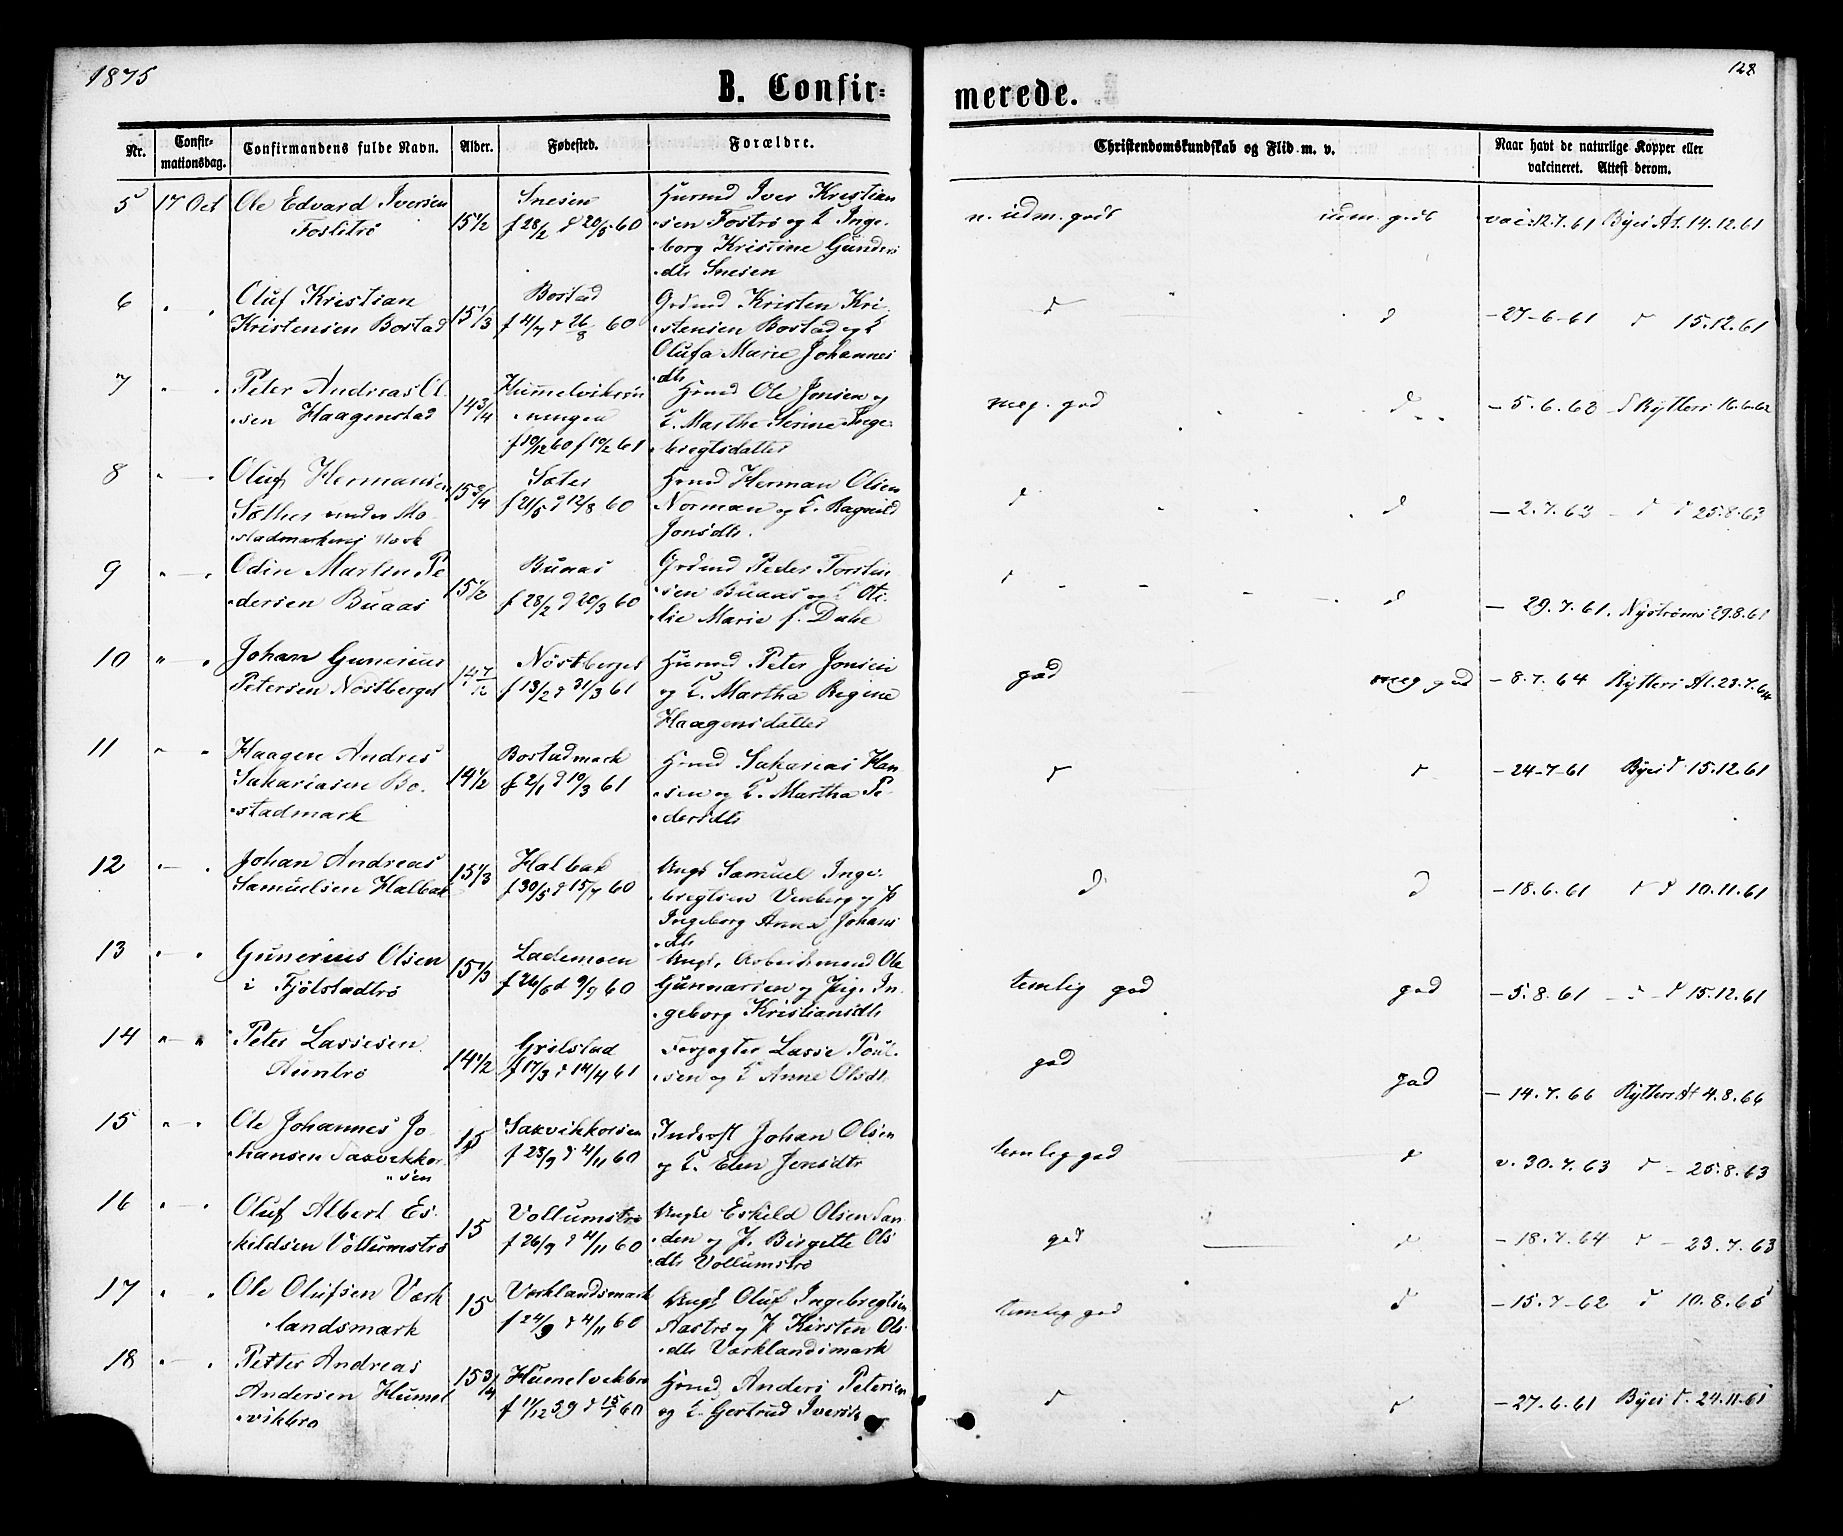 1875
128
B. Confir-
merede.
Nr.
Confir-
mationsdag.
Confirmandens fulde Navn.
Alder.
Fødested.
Forældre.
Christendomskundskab og Flid m. v.
Naar havt de naturlige Kopper eller
vakcineret. Attest derom.
5 17 Oct Ole Edvard Iversen 15 1/2 Snesen
f 28/2 60
Husmd Iver Kristian
sen Fostrø og Inge
borg Kristine
dtr Snesen
udm. godt udm. godt vac. 12.7.61 Byes At. 14.12.61
6 Oluf Kristian
Kristensen Bostad 15 1/3 Bostad
f 4/7 d 26/8 60
Grdmd Kristen Kri
stensen Bostad og
Olufa Marie Johannes
dtr
d d - 27-6-61 d 15.12.61
7 Peter Andreas Ol
sen Haagenstad 14 3/4
f 10/12 60 f 10/2 61
Ole Jonsen og
Marthe Serine Inge
bregtsdatter
meg. god d - 5.6.62 Rytters 16.6.62
8 Oluf Hermansen
Sæther under Mo
stadmarkens Mark 15 Sæter
f 21/5 d 12/8 60
Herman Olsen
Norman og Ragnild
Jonsdtr.
d d - 2.7.63 d 25.8.63
9 Odin Martin Pe
dersen Buaas 15 1/2 Buaas
f 28/2 d 20/3 60
Grdmd Peder Torstin
sen Buaas og Oti
lie Marie f. Dahe
d d - 29.7.61. Nystrøms 29.8.61
10 Johan Gunerius
Petersen Nostberget 14 7/12 Nostberget
f 13/2 d 31/3 61
Husmd Peter Jonsen
og Martha Regine
Haagensdatter
god meg god - 8.7.64 Rytters At. 23.7.64
11 Haagen Andres
Sakariasen Bo
stadmark 14 1/2 Bostadmark
f 2/1 d 10/3 61
Sakarias Han
sen og Martha Pe
dersdtr
d d - 24-7-61 Byes d 15.12.61
12 Johan Andreas
Samuelsen Halbak 15 1/3 Halbak
f 30/5 d 15/7 60
Ungk Samuel Inge
bregtsen Venberg og P
Ingeborg Anna Johans
dtr
d d - 18.6.61 d d 10.11.61
13 Gunerius Olsen
i Fjølstadtrø 15 1/3 Lademoen
f 26/6 d 9/9 60
Ungk. Arbeidsmand Ole
Gunnarsen og Pig. In
geborg Kristiansdtr
temlig god god - 5.8.61 d 15.12.61
14 Peter Lassesen
Auntrø 14 1/2 Grilstad
f 17/3 d 14/4 61
Forpagter Lasse Poul
sen og Anne Olsdtr
god god - 14.7.66 Rytters At 4.8.66
15 Ole Johannes Jo
hansen Saxvikkor
sen 15 Saxvikkorsen
f 23/9 d 4/11 60
Inderst Johan Olsen
og Elen Jensdtr
temlig god d v. 30.7.63 d - 25.8.63
16 Oluf Albert Es
kildsen Vollumstrø 15 Vollumstrø
f 26/9 d 4/11 60
Ungk Eskild Olsen San
den og P. Birgette Ols
dtr Vollumstrø
god d - 18.7.64 d - 23.7.63
17 Ole Olufsen Værk
landsmark 15 Værklandsmark
f 24/9 d 4/11 60
Ungk Oluf Ingebregtsen
Aastrø og P Kirsten Ols
dtr Værklandsmark
temlig god d - 15.7-62 d 10.8.65
18 Petter Andreas
Andersen Humel
vikbro 15 3/4 Humelvikbro
f 17/12 59 d 15/1 60
Anders Petersen
og Gertrud Iversdtr
d d - 27.6.61 Byes d. 24.11.61